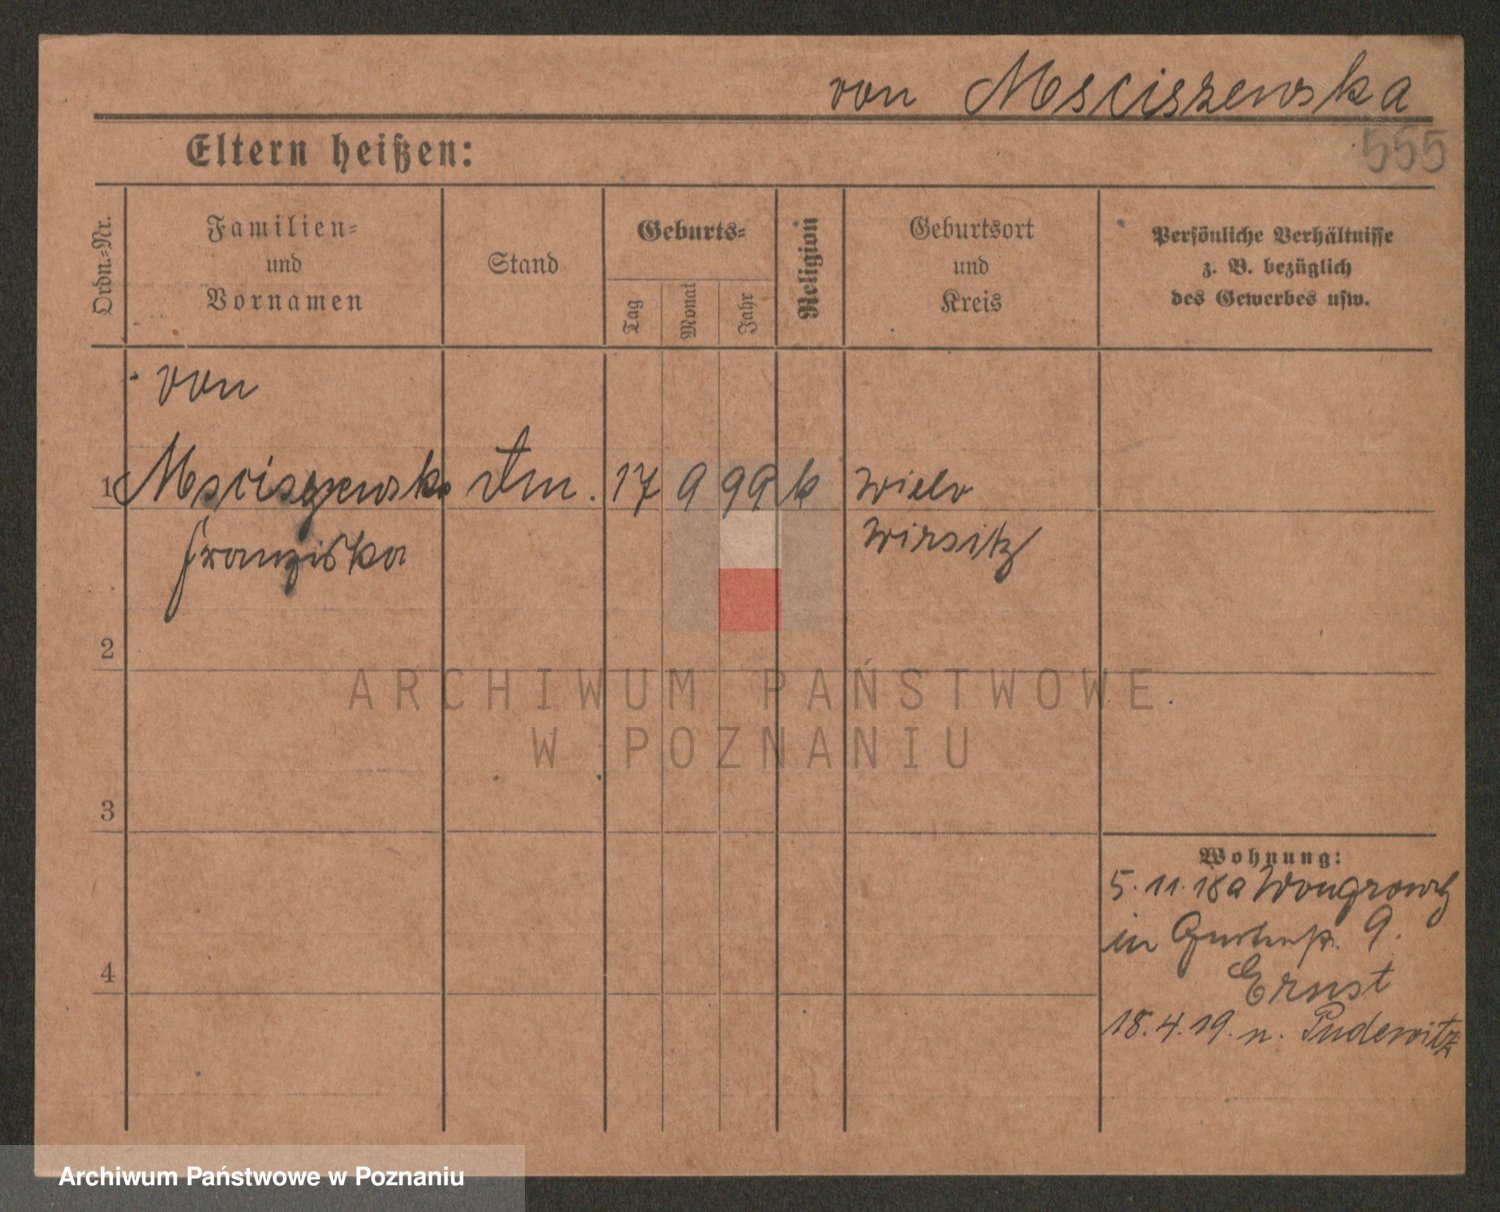 von Msciszewska
555
Eltern heißen:
Ordn.-Nr.
Familien-
und
Vornamen
Stand
Geburts-
Tag
Monat
Jahr
Religion
Geburtsort
und
Kreis
Persönliche Verhältnisse
z. B. bezüglich
des Gewerbes usw.
von
1 Msciszewska 17 9 99 k
Franziska Wirsitz
2
ARCHIWUM PAŃSTWOWE
W POZNANIU
3
Wohnung:
5.11.18 a Wongrowitz
in 9.
4
Ernst
18.4.19. n. Pudewitz
Archiwum Państwowe w Poznaniu